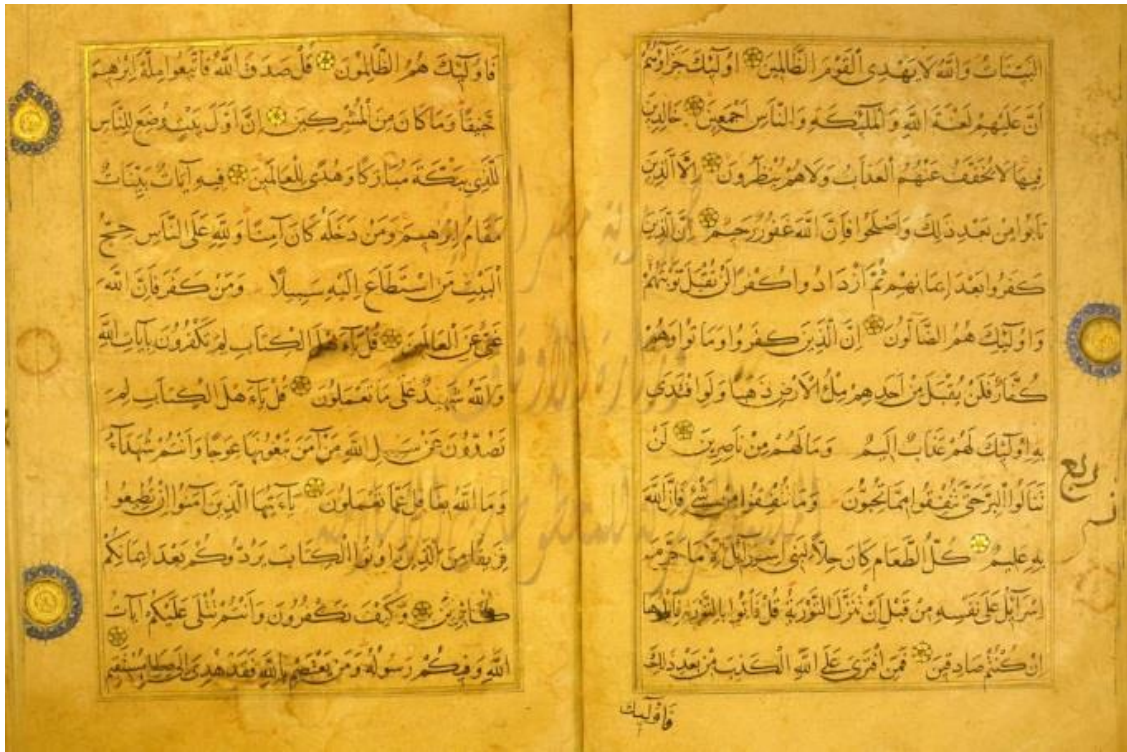 البينات والله لا يهدي القوم الظالمين اولئك جزاؤهم
أن عليهم لعنة الله والملئكة والناس اجمعين خالدين
فيها لا يخفف عنهم العذاب ولا هم ينظرون إلا الذين
تابوا من بعد ذلك واصلحوا فان الله غفور رحيم إن الذين
كفروا بعد ايمانهم ثم ازدادوا كفرا لن تقبل توبتهم
واولئك هم الضالون إن الذين كفروا وماتوا وهم
كفار فلن يقبل من احدهم ملء الارض ذهبا ولو افتدى
به اولئك لهم عذاب اليم وما لهم من ناصرين لن
تنالوا البر حتى تنفقوا مما تحبون وما تنفقوا من شيء فان الله
به عليم كل الطعام كان حلا لبني اسرآئل إلا ما حرم
اسرآئل على نفسه من قبل ان تنزل التورية قل فأتوا بالتورية فاتلوها
ان كنتم صادقين فمن افترى على الله الكذب من بعد ذلك
فاولئك
ربع
فاولئك هم الظالمون قل صدق الله فاتبعوا ملة ابرهيم
حنيفا وما كان من المشركين إن أول بيت وضع للناس
للذي ببكة مباركا وهدى للعالمين فيه آيات بينات
مقام ابرهيم ومن دخله كان آمنا ولله على الناس حج
البيت من استطاع اليه سبيلا ومن كفر فان الله
غني عن العالمين قل يآءهل الكتاب لم تكفرون بآيات الله
والله شهيد على ما تعملون قل يآءهل الكتاب لم
تصدون عن سبيل الله من آمن تبغونها عوجا وانتم شهدآء
وما الله بغافل عما تعملون يآءيها الذين آمنوا إن تطيعوا
فريقا من الذين اوتوا الكتاب يردوكم بعد ايمانكم
كافرين وكيف تكفرون وأنتم تتلى عليكم آيات
الله وفيكم رسوله ومن يعتصم بالله فقد هدي إلى صراط مستقيم